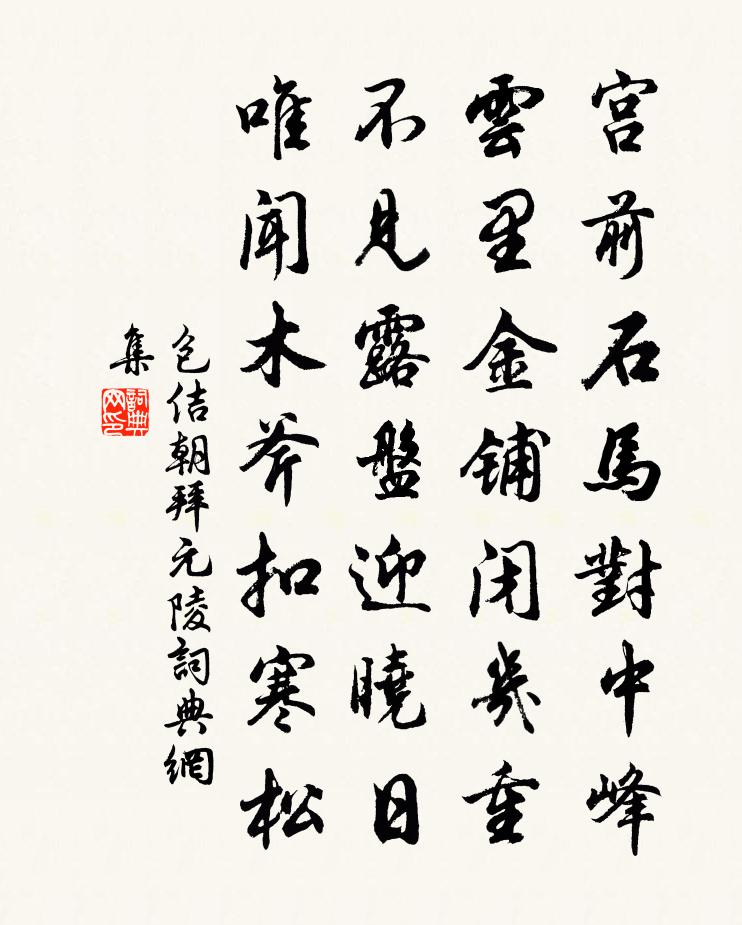 宫前石馬對中峰
雲里金铺闭幾重
不見露盤迎曉日
唯闻木斧扣寒松
包佶朝拜元陵詞典網
集
詞典网印